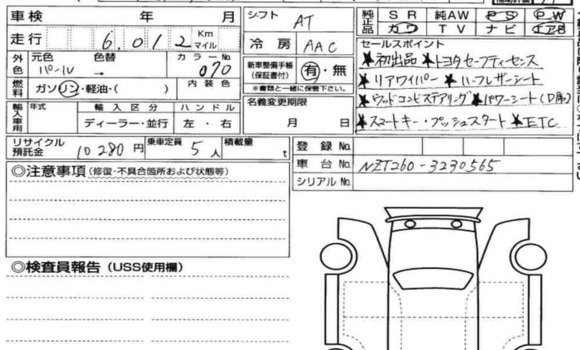 車検 年 月
走行 6.012 Km マイル
外色 元色 色替 カラーNo.
パール → 070
燃料 ガソリン・軽油・( ) 内装色
輸入車用 年式 輸入区分 ハンドル
ディーラー・並行 左・右
リサイクル預託金 10280円 乗車定員 5人 積載量 t
シフト AT
冷房 AAC
新車整備手帳(保証書付) 有・無
※書類と一緒に保管下さい。
名義変更期限
月 日
純正品 SR 純AW PS PW
カワ TV ナビ エアB
セールスポイント
★初出品 ★トヨタセーフティセンス
★リアワイパー ★ハーフレザーシート
★ウッドコンビステアリング ★パワーシート(D席)
★スマートキー・プッシュスタート ★ETC
登録No.
車台No. NZT260-3230565
シリアルNo.
◎注意事項(修復・不具合箇所および状態等)
◎検査員報告(USS使用欄)